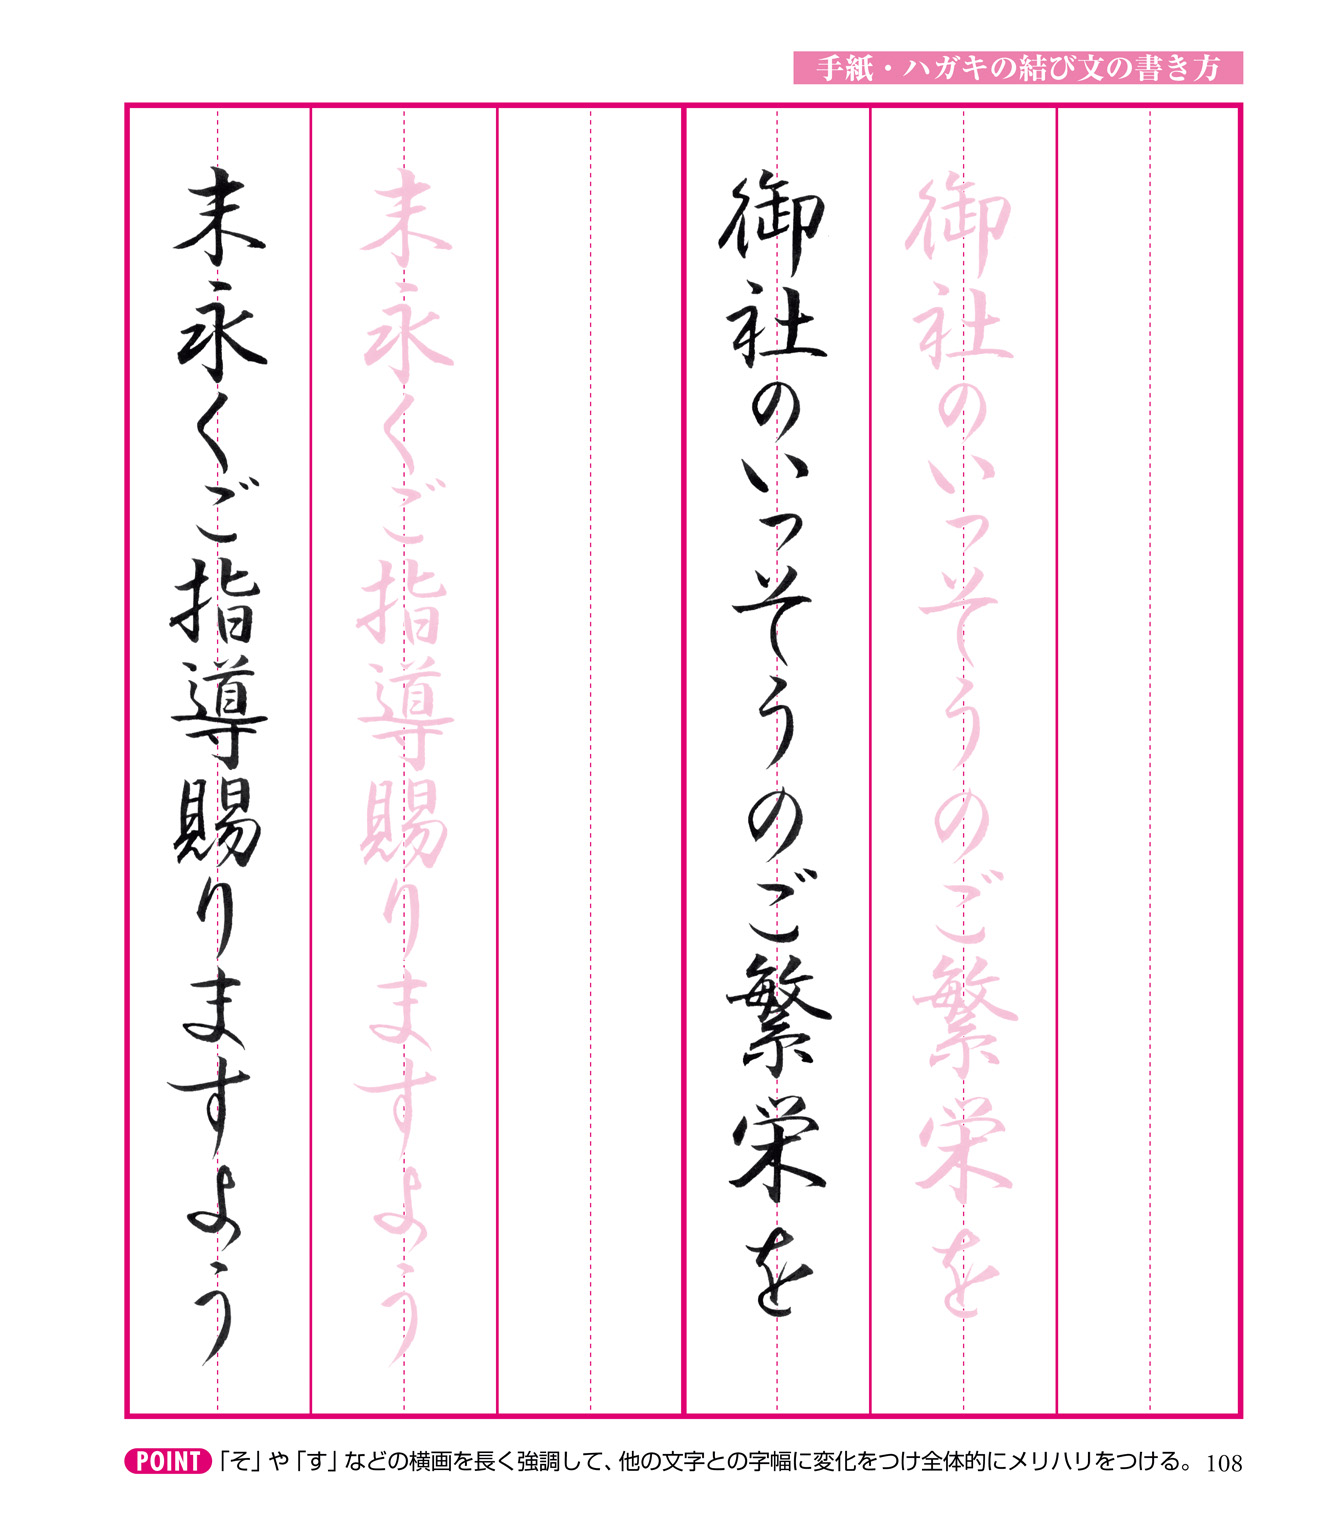 手紙・ハガキの結び文の書き方
御社のいっそうのご繁栄を
御社のいっそうのご繁栄を
末永くご指導賜りますよう
末永くご指導賜りますよう
POINT 「そ」や「す」などの横画を長く強調して、他の文字との字幅に変化をつけ全体的にメリハリをつける。 108